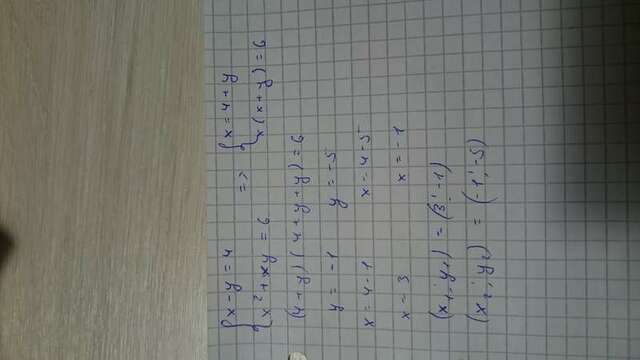 x - y = 4 => x = 4 + y
x² + xy = 6 x (x + y) = 6
(4 + y) (4 + y + y) = 6
y = -1 y = -5
x = 4 - 1 x = 4 - 5
x = 3 x = -1
(x₁; y₁) = (3; -1)
(x₂; y₂) = (-1; -5)